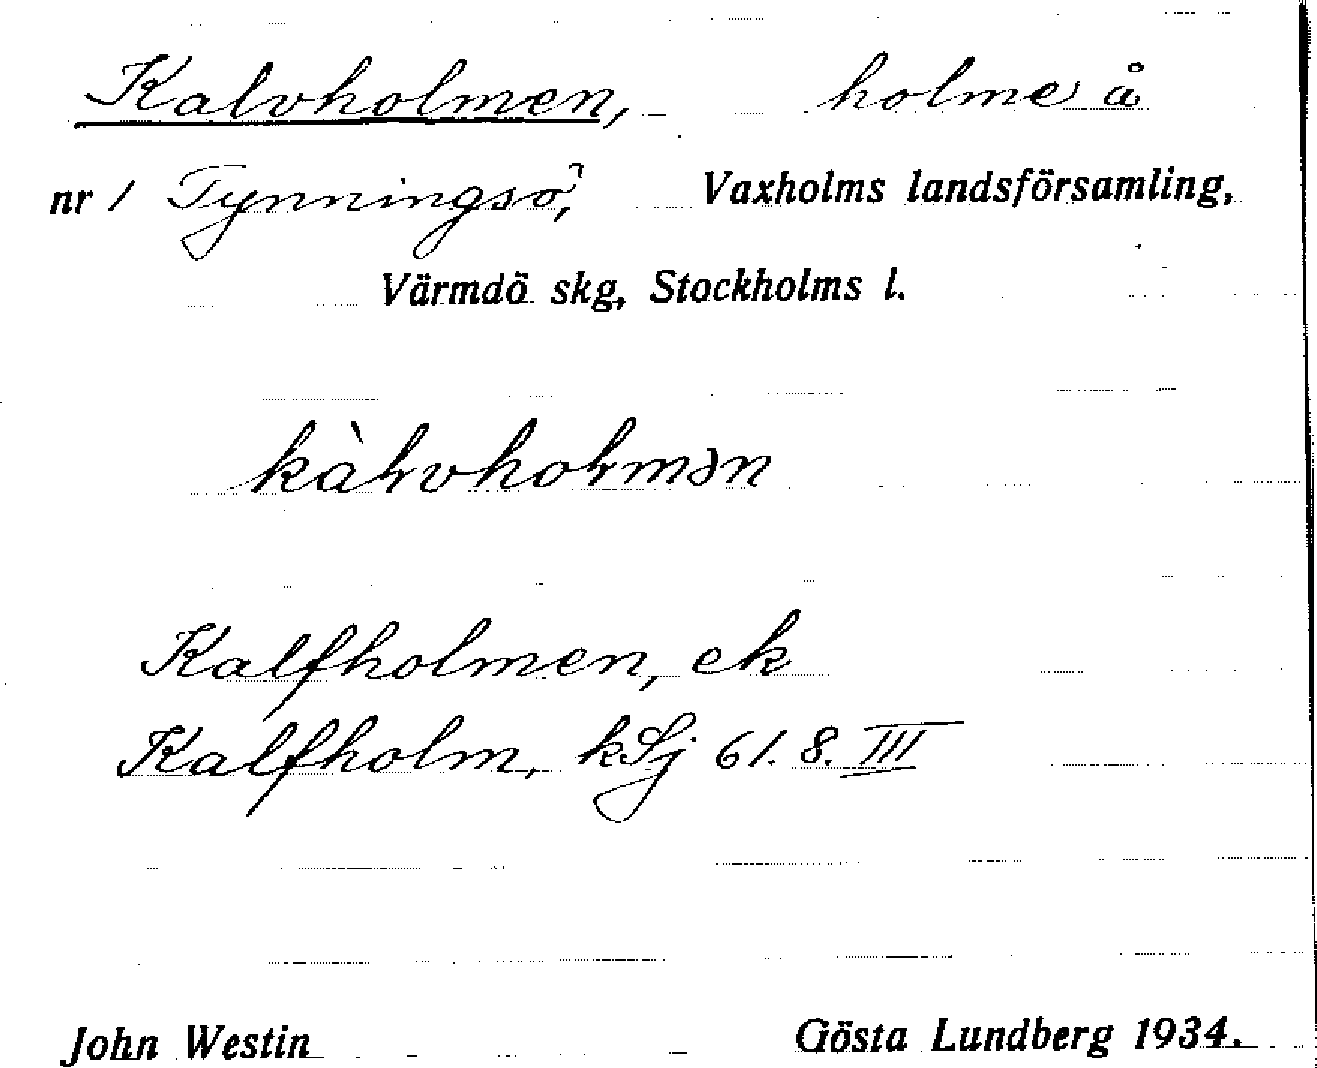 Kalvholmen, holme å
nr 1 Tynningsö, Vaxholms landsförsamling,
Värmdö skg, Stockholms l.
kàɫvhoɫmən
Kalfholmen, ek
Kalfholm, kSj 61. 8. III
John Westin Gösta Lundberg 1934.